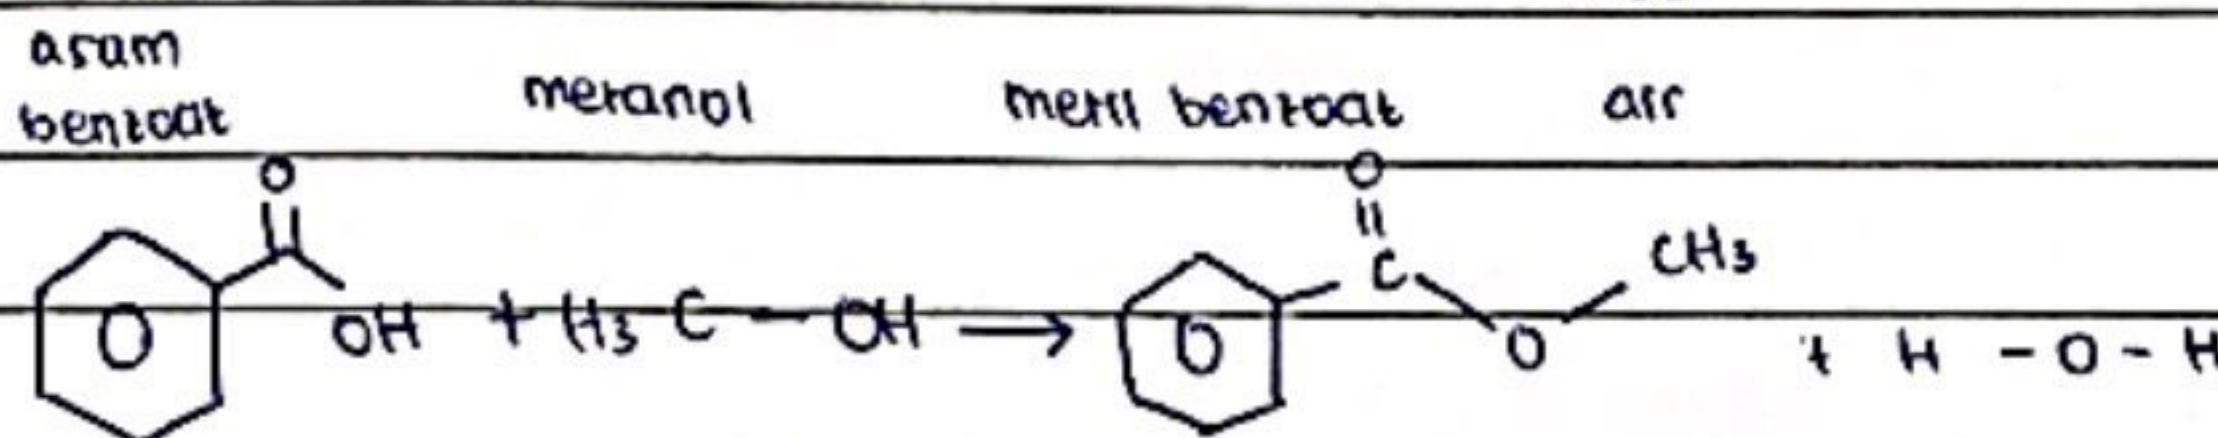 asam
benzoat metanol metil benzoat air
O O
C CH3
OH + H3 C - OH → O + H - O - H